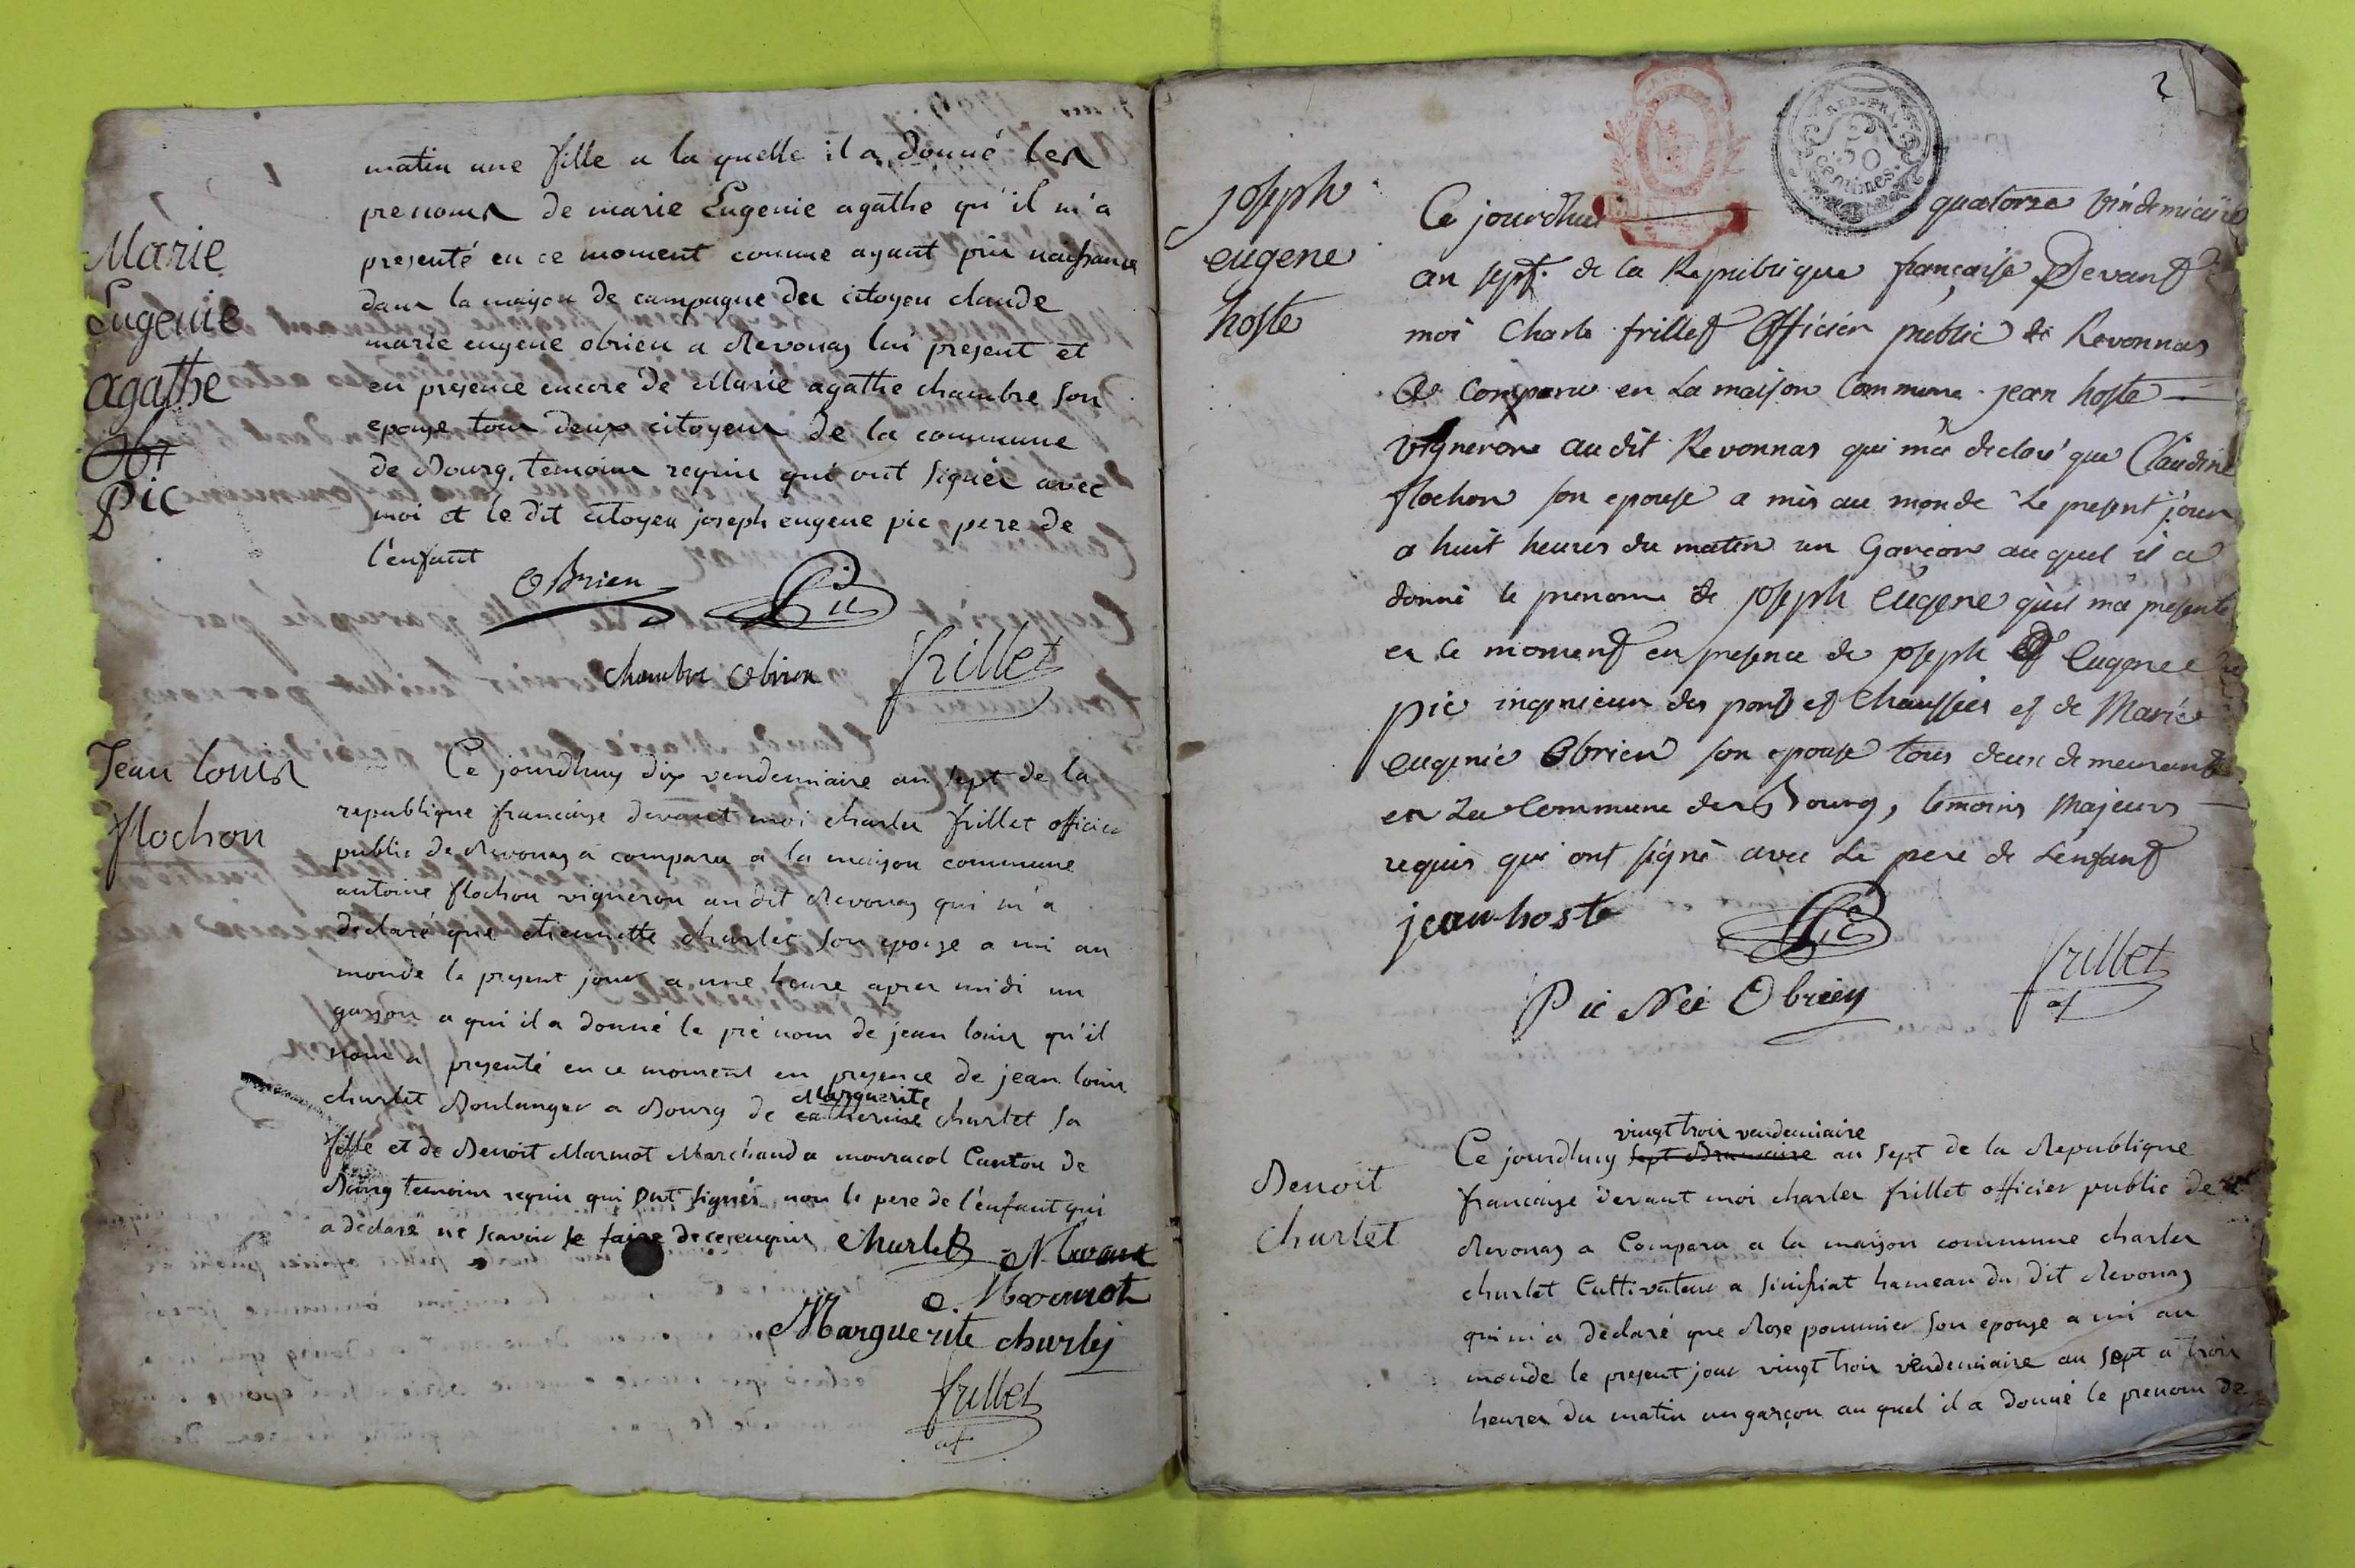 matin une fille a la quelle il a donné les
prenoms de marie Eugenie agathe qu'il m'a
presenté en ce moment comme ayant pris naissance
dans la maison de campagne du citoyen claude
marie eugene obrien a Revonas lui present et
en presence encore de Marie agathe chambre son
epouse tous deux citoyens de la commune
de Bourg, temoins requis qui ont signés avec
moi et le dit citoyen joseph eugene pic pere de
l'enfant
Marie
Eugenie
agathe
Obr
Pic
OBrien Pic
chambre Obrien frillet
Jean louis
flochon
Ce jourdhuy dix vendemiaire an sept de la
republique francaise devant moi charles frillet officier
public de Revonas a comparu a la maison commune
antoine flochon vigneron au dit Revonas qui m'a
declaré que etiennette churlet son epouse a mi au
monde le present jour a une heure apres midi un
garson a qui il a donné le pré nom de jean louis qu'il
nous a presenté en ce moment en presence de jean louis
churlet Boulanger a Bourg de catherine Marguerite churlet sa
fille et de Benoit Marmot Marchand a mouracol Canton de
Bourg temoins requis qui ont signés non le pere de l'enfant qui
a declaré ne scavoir le faire de ce requis churlet
Marmot
Marguerite churlet
frillet
2
REP. FR.
50
centimes
joseph
eugene
hoste
Ce jourdhui quatorze vindemiaire
an sept. de la Republique française Devant
moi Charle frillet Officier public de Revonnas
a Comparu en La maison Commune jean hoste
vigneron au dit Revonnas qui ma declaré que Claudine
flochon son epouse a mis au monde Le present jour
a huit heures du matin un Garcon au quel il a
donné le prenom de joseph Eugene qu'il ma presenté
en ce moment en presence de joseph Eugene
pic ingenieur des ponts et Chaussées et de Marie
eugenie Obrien son epouse tous deux demeurant
en La Commune de Bourg, temoins Majeurs
requis qui ont signé avec Le pere de Lenfant
jean hoste Pic
Pic Née Obrien frillet
Benoit
churlet
vingt trois vendemiaire
Ce jourdhuy sept Brumaire an sept de la Republique
francaise devant moi charles frillet officier public de
Revonas a Comparu a la maison commune charles
churlet Cultivateur a Sinissiat hameau du dit Revonas
qui m'a declaré que Rose pommier son epouse a mi au
monde le present jour vingt trois vendemiaire an sept a trois
heures du matin un garçon au quel il a donné le prenom de